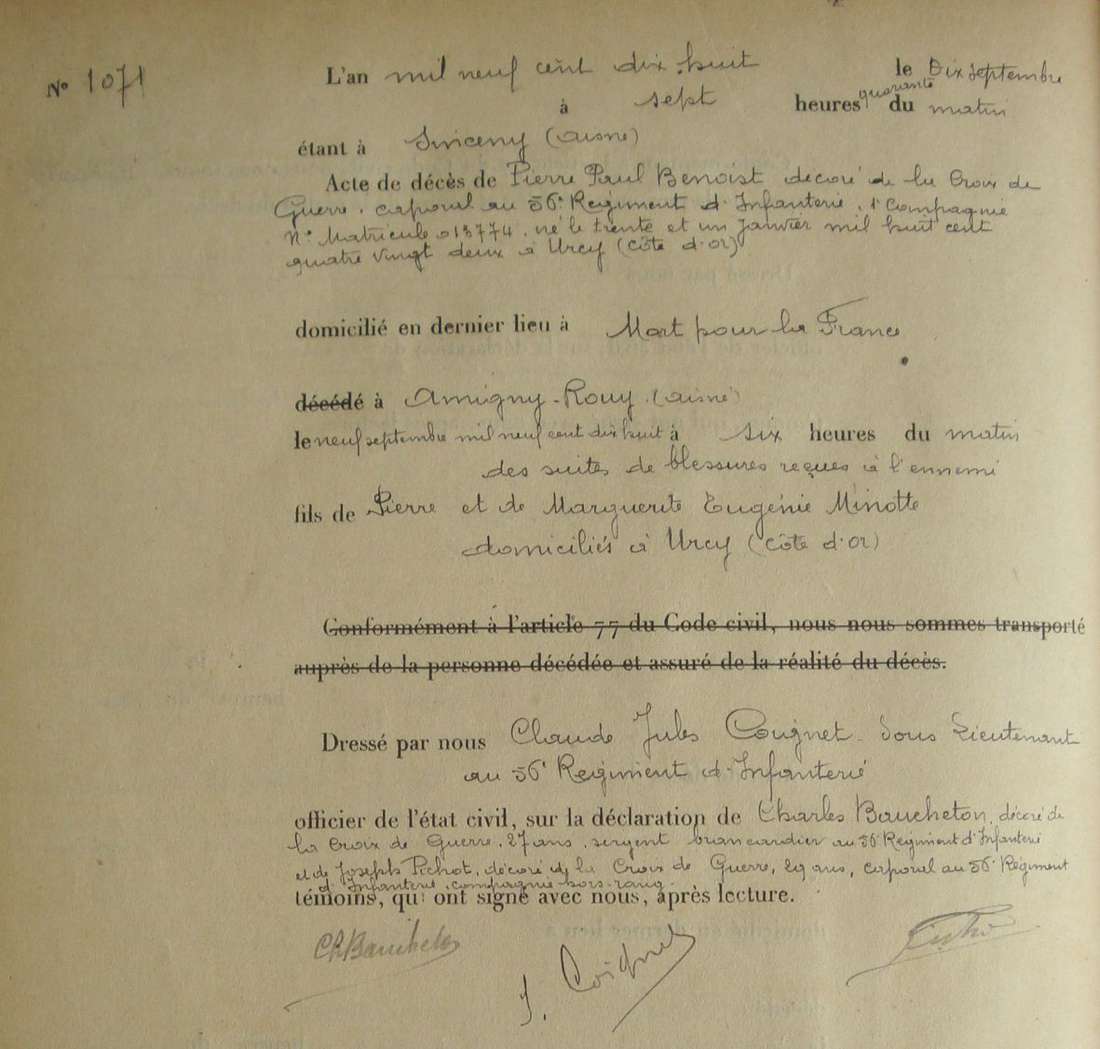 N° 1071
L'an mil neuf cent dix huit le Dix septembre
à sept heures quarante du matin
étant à Sinceny (Aisne)
Acte de décès de Pierre Paul Benoist décoré de la Croix de
Guerre, caporal au 56e Régiment d'Infanterie, 1e Compagnie
N° Matricule 013774, né le trente et un Janvier mil huit cent
quatre vingt deux à Urcy (Côte d'Or)
domicilié en dernier lieu à Mort pour la France
décédé à Amigny-Rouy (Aisne)
le neuf septembre mil neuf cent dix huit à six heures du matin
des suites de blessures reçues à l'ennemi
fils de Pierre et de Marguerite Eugénie Minotte
domiciliés à Urcy (Côte d'Or)
Conformément à l'article 77 du Code civil, nous nous sommes transporté
auprès de la personne décédée et assuré de la réalité du décès.
Dressé par nous Claude Jules Coignet Sous Lieutenant
au 56e Régiment d'Infanterie
officier de l'état civil, sur la déclaration de Charles Baucheton, décoré de
la Croix de Guerre, 27 ans, sergent brancardier au 56e Régiment d'Infanterie
et de Joseph Pichot, décoré de la Croix de Guerre, 29 ans, caporal au 56e Régiment
d'Infanterie, compagnie hors-rang.
témoins, qui ont signé avec nous, après lecture.
Ch Baucheton
J. Coignet